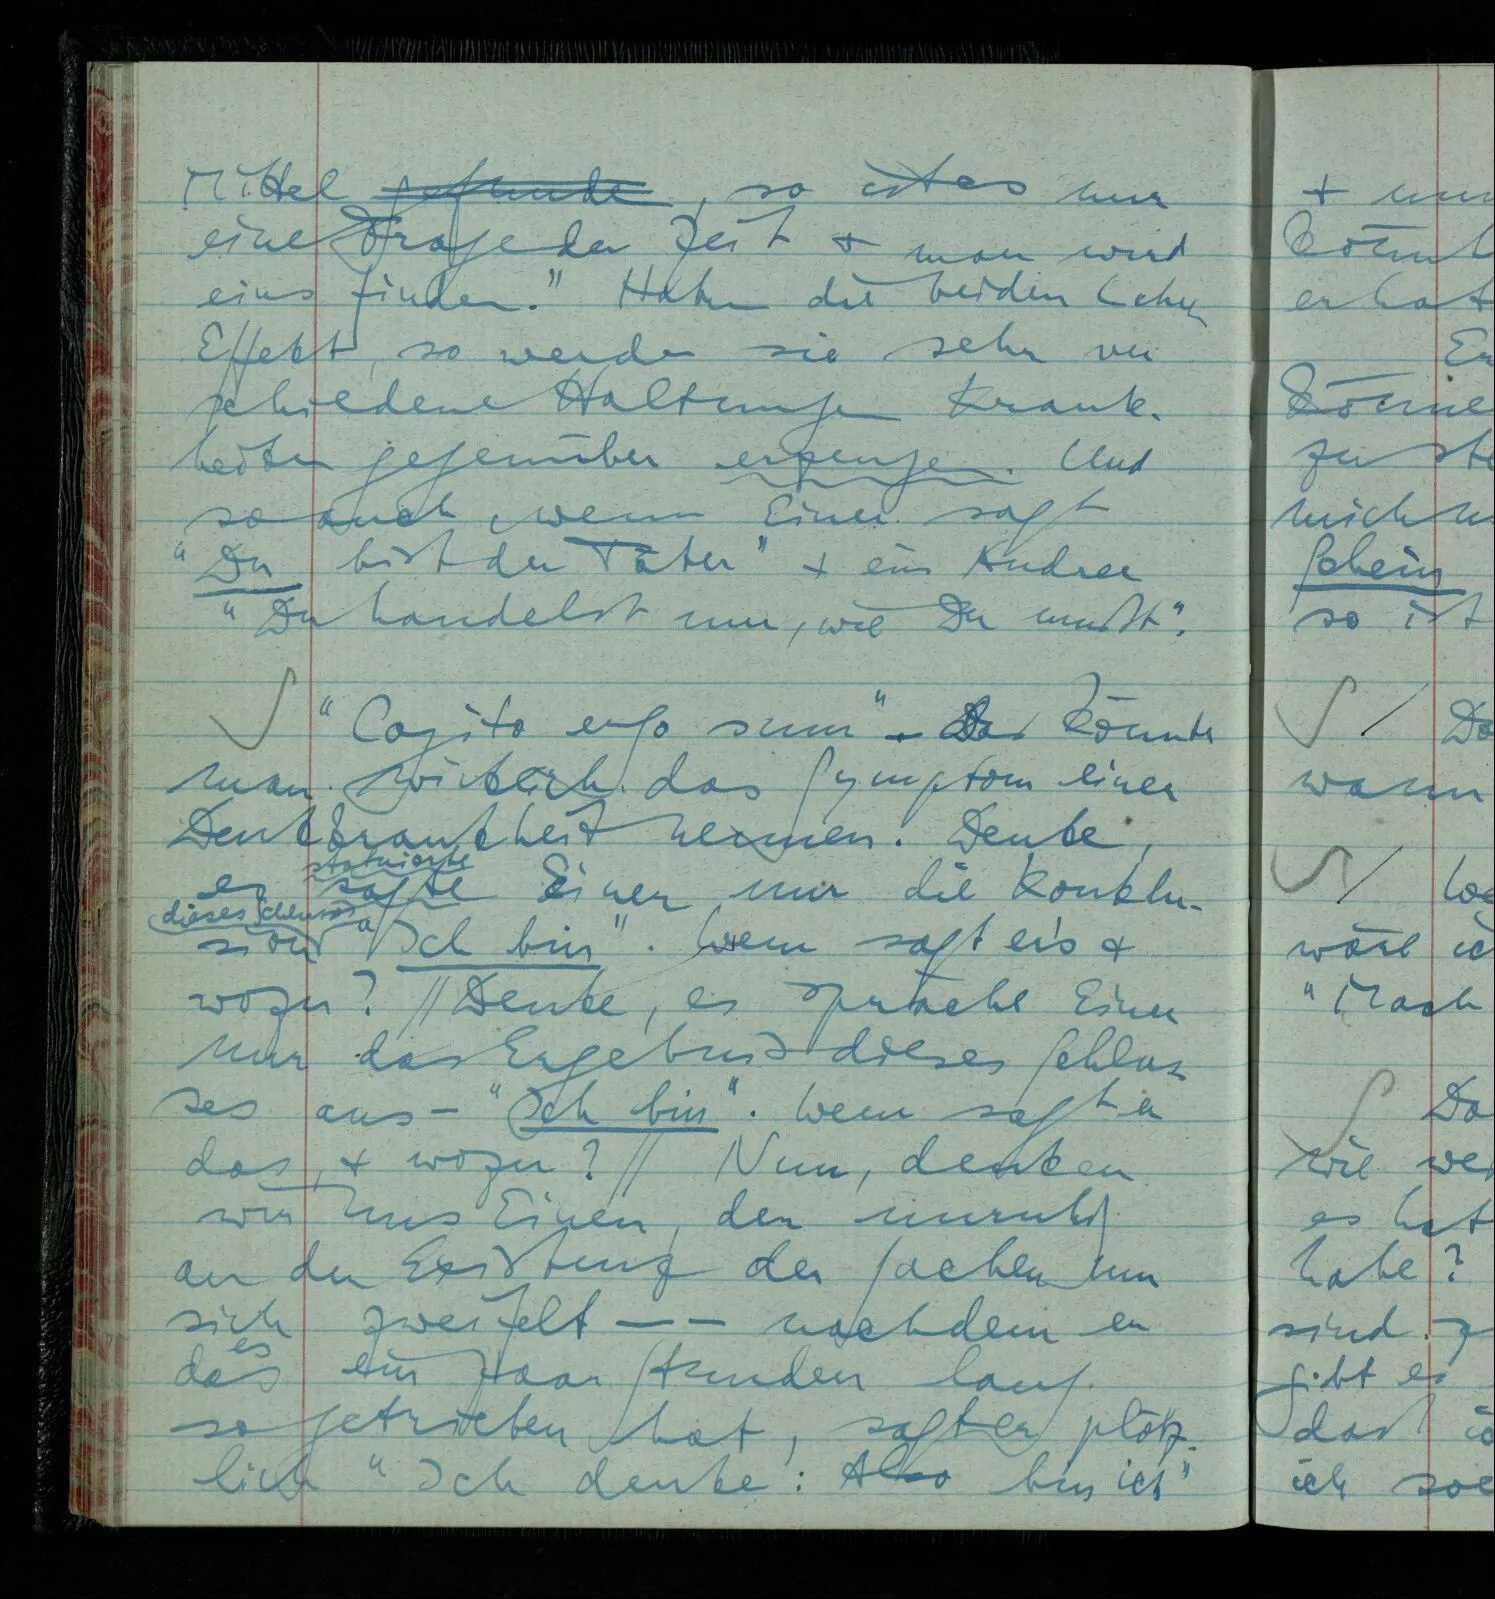 Mittel gefunde, so ist es nur
eine Frage der Zeit & man wird
eins finden." Haben die beiden Lehren
Effekt, so werden sie sehr ver
schiedene Haltungen Krank-
heiten gegenüber erzeugen. Und
so auch, wenn Einer sagt
"Du bist der Täter" & ein Andrer
"Du handelst nur, wie Du mußt".
"Cogito ergo sum". Das könnte
man wirklich das Symptom einer
Denkkrankheit nennen. Denke,
statuierte
es sagte Einer nur die Konklu-
dieses Schlusses
sion "Ich bin". Wem sagt er's &
wozu? // Denke, es spräche Einer
nur das Ergebnis dieses Schlus
ses aus – "Ich bin". Wem sagt er
das, & wozu? // Nun, denken
wir uns Einen, der unruhig
an der Existenz der Sachen um
sich zweifelt –– nachdem er
es
das ein paar Stunden lang
so getrieben hat, sagt er plötz-
lich "Ich denke: Also bin ich"
& nun
könnt
er hat
Er
könne
zu ste
mich n
Schein
so ist
/ Da
wann
/ We
wäre ic
"Mach
Da
wie we
es hat
habe?
sind z
gibt es
daß ic
ich soe